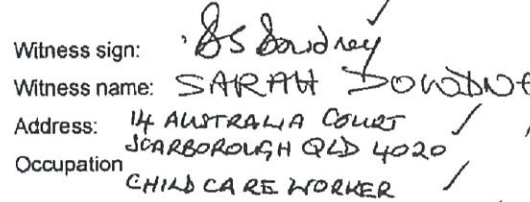 Witness sign:
Witness name: SARAH
Address: 14 AUSTRALIA COURT
SCARBOROUGH QLD 4020
Occupation
CHILD CARE WORKER